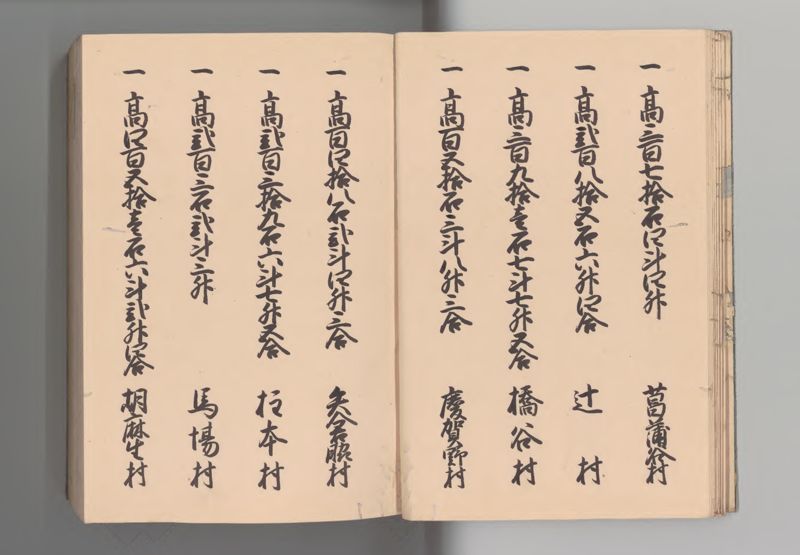 一高三百七拾石四斗四升 菖蒲谷村
一高弐百八拾五石六升四合 辻村
一高三百九拾壱石七斗七升五合 橋谷村
一高百五拾石三斗八升三合 慶賀野村
一高百四拾八石弐斗四升三合 矢倉脇村
一高弐百三拾九石六斗七升五合 柱本村
一高弐百三石弐斗三升 馬場村
一高四百五拾壱石六斗弐升四合 胡麻生村